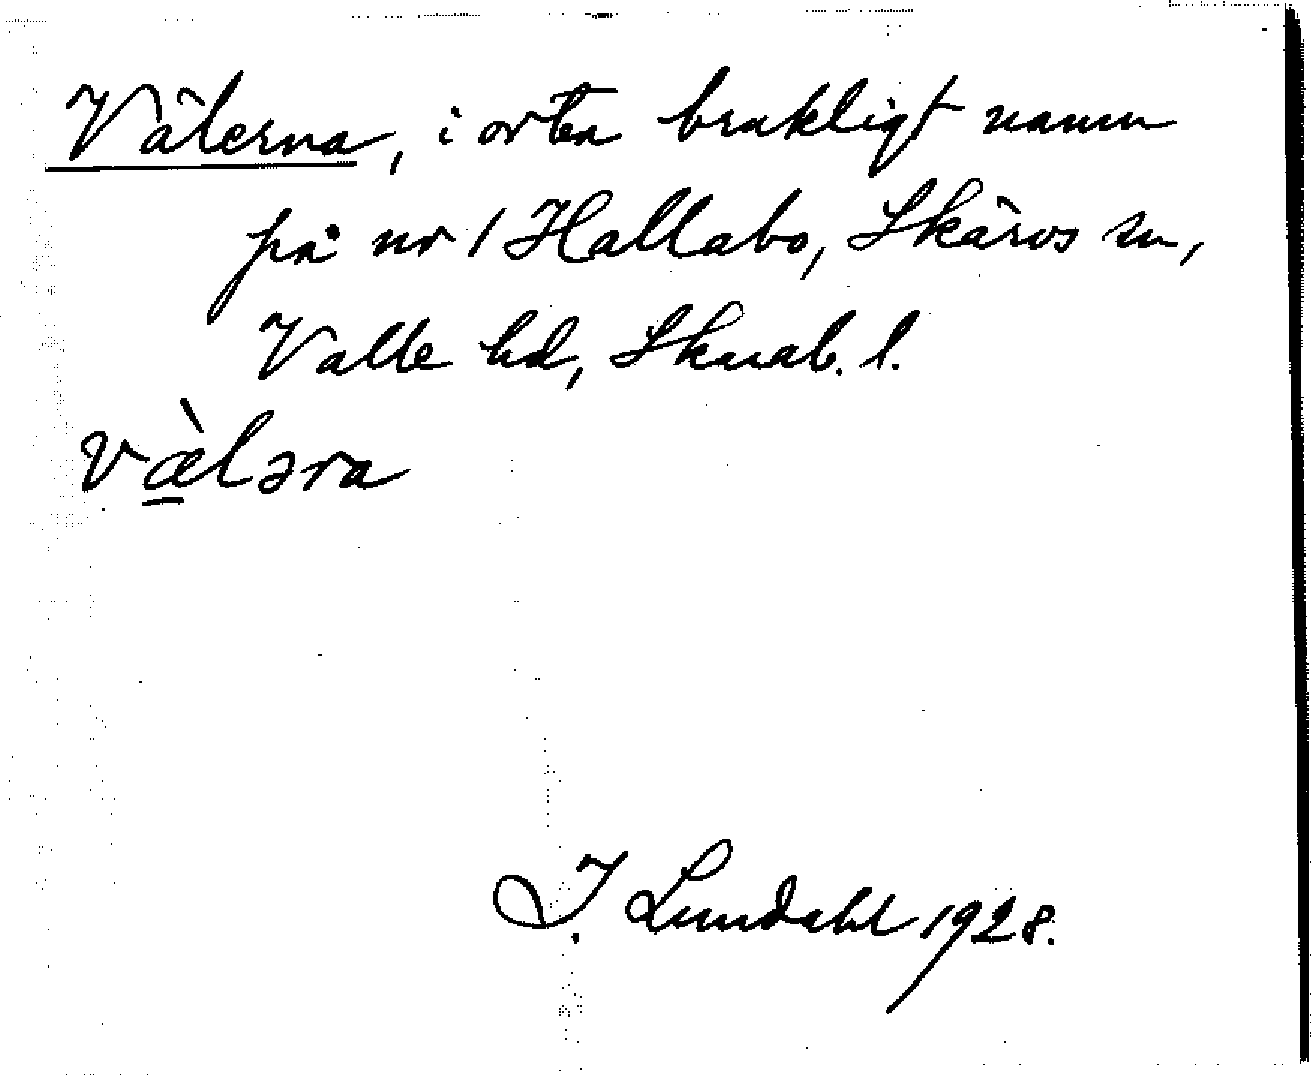 Välerna, i orten brukligt namn
på nr 1 Hallabo, Skärvs sn,
Valle hd, Skarab. l.
væ̀lǝra
I. Lundahl 1928.